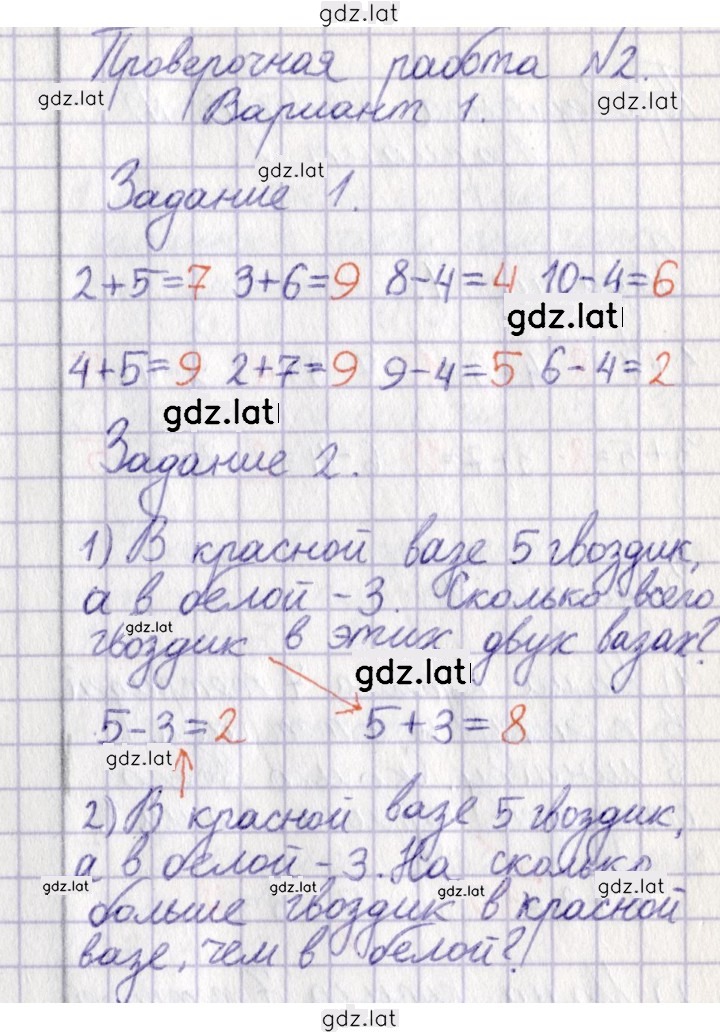 gdz.lat
Проверочная работа №2.
gdz.lat gdz.lat
Вариант 1.
gdz.lat
Задание 1.
2+5=7 3+6=9 8-4=4 10-4=6
gdz.lat
4+5=9 2+7=9 9-4=5 6-4=2
gdz.lat
Задание 2.
1) В красной вазе 5 гвоздик,
а в белой - 3. Сколько всего
gdz.lat
гвоздик в этих двух вазах?
gdz.lat
5-3=2 5+3=8
gdz.lat
2) В красной вазе 5 гвоздик,
а в белой - 3. На сколько
gdz.lat gdz.lat gdz.lat gdz.lat
больше гвоздик в красной
вазе, чем в белой?
gdz.lat